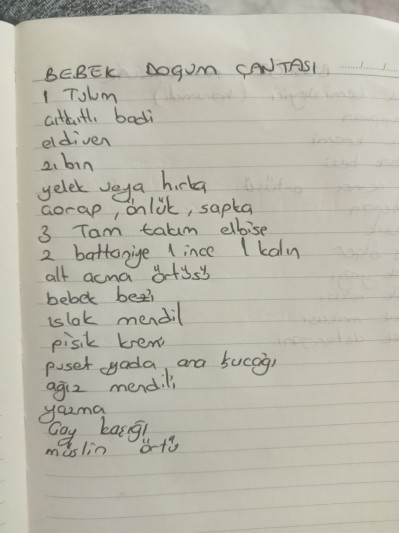 BEBEK DOGUM ÇANTASI
1 Tulum
çıtçıtlı badi
eldiven
zıbın
yelek veya hırka
çorap, önlük, şapka
3 Tam takım elbise
2 battaniye 1 ince 1 kalın
alt açma örtüsü
bebek bezi
ıslak mendil
pişik kremi
puset yada ana kucağı
ağız mendili
yazma
Çay kaşığı
müslin örtü